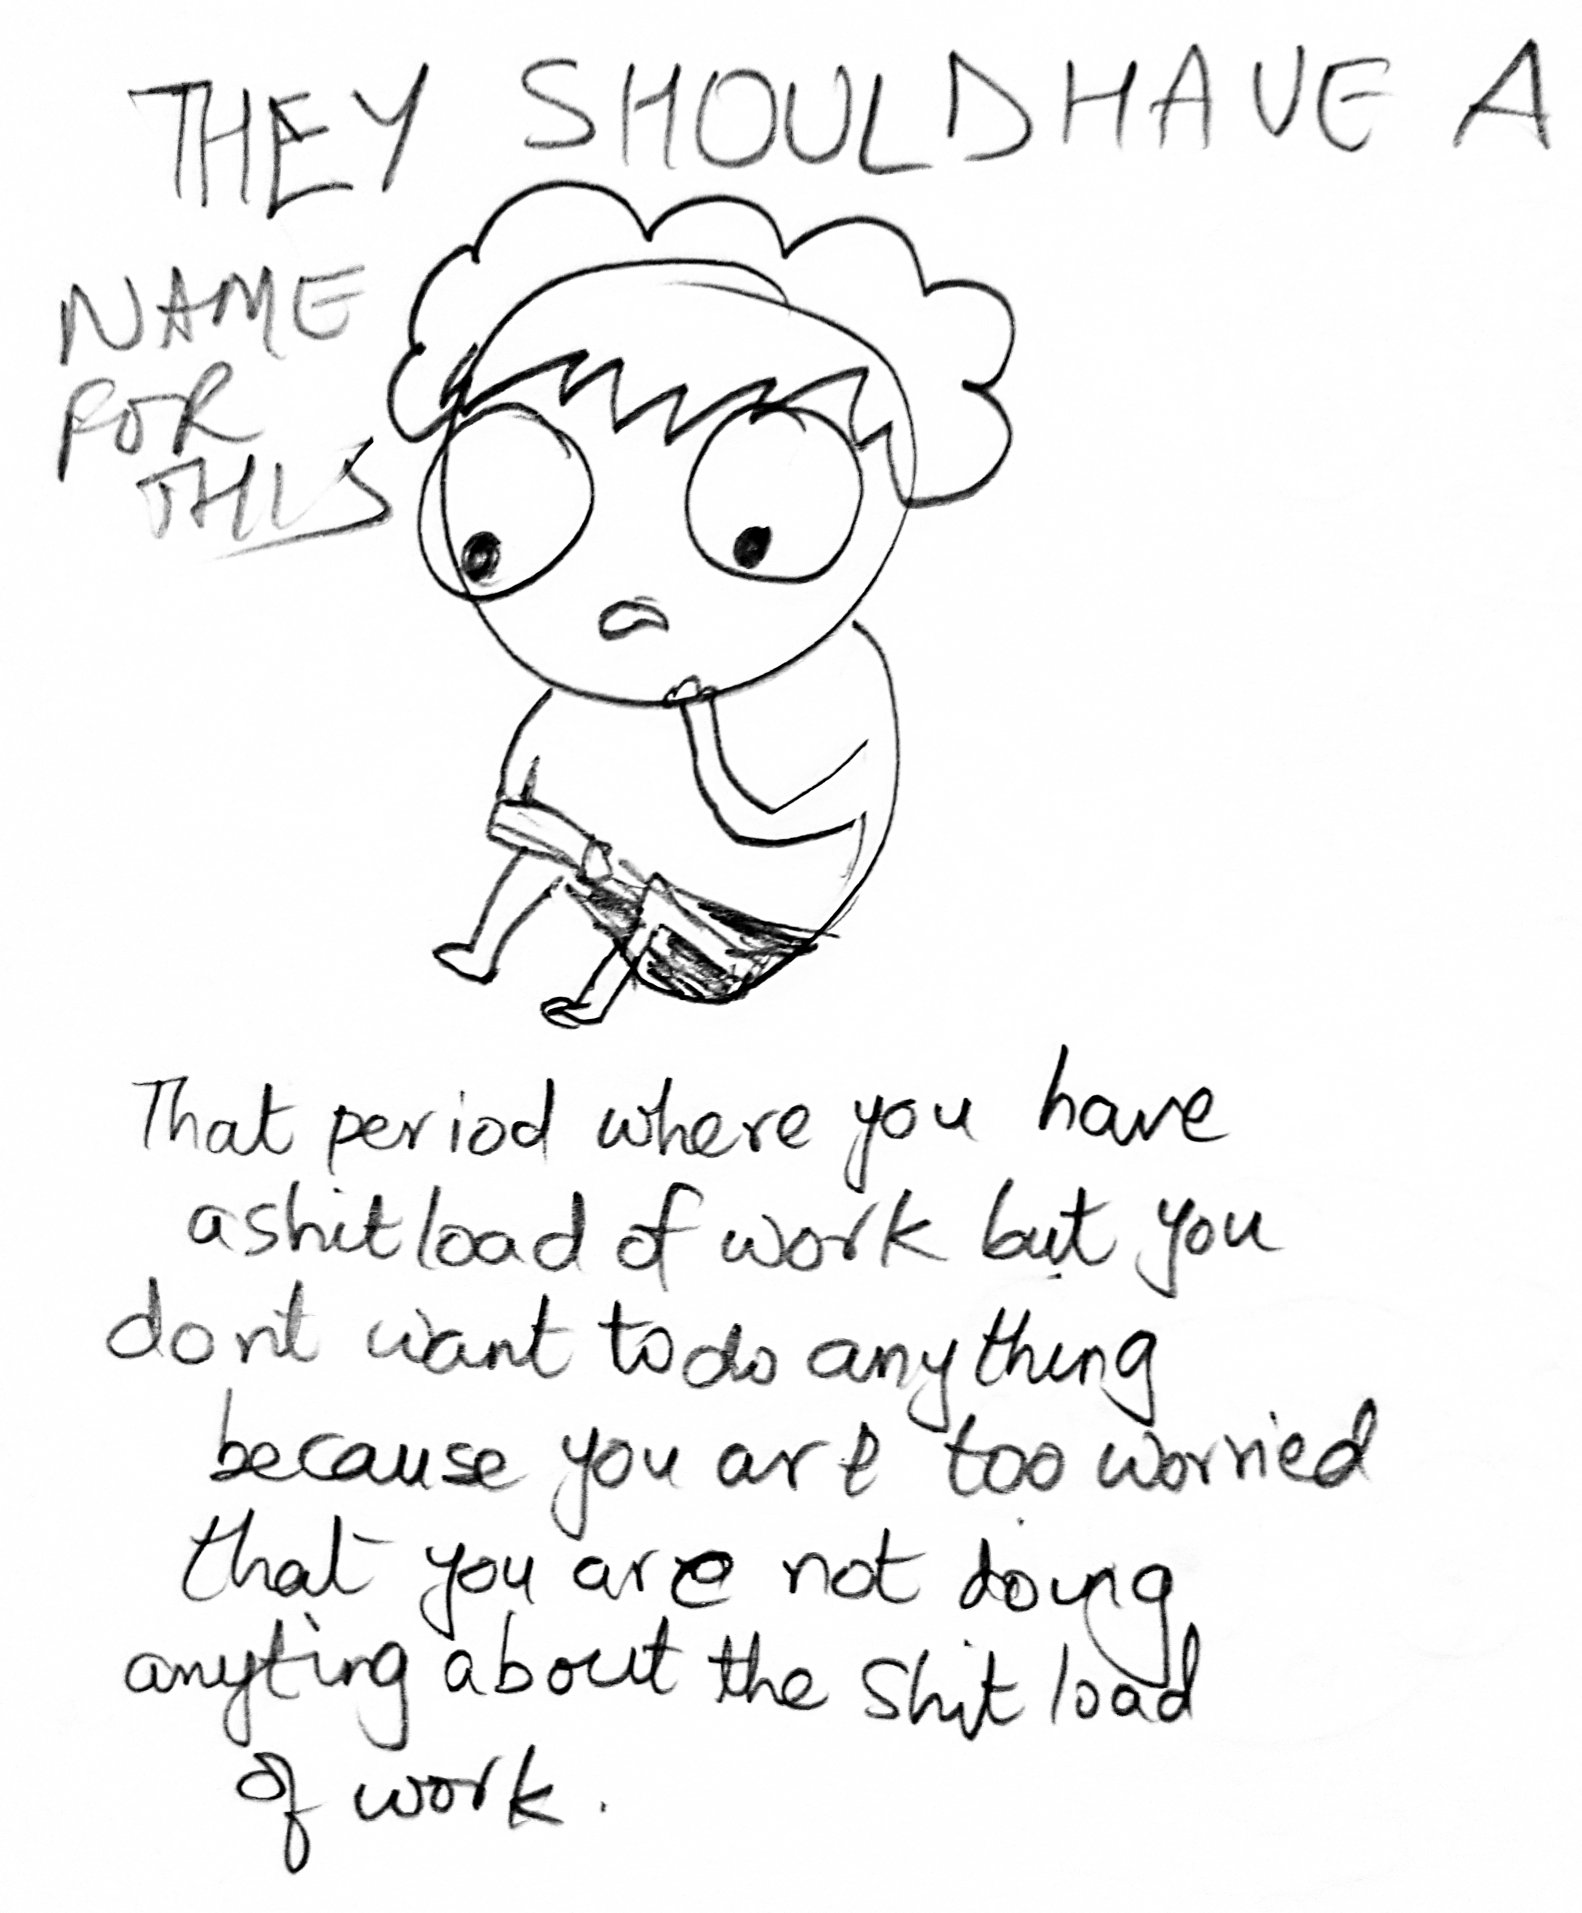 THEY SHOULD HAVE A
NAME
FOR
THIS
That period where you have
a shit load of work but you
dont want to do anything
because you are too worried
that you are not doing
anyting about the shit load
of work.